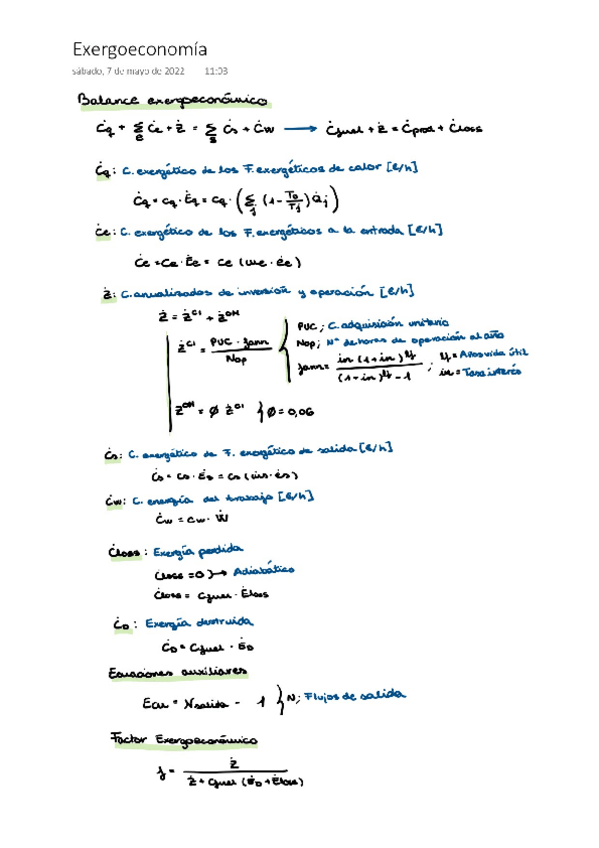 Exergoeconomía
sábado, 7 de mayo de 2022 11:03
Balance exergoeconómico
Ċq + Σe Ċe + Ż = Σs Ċs + Ċw → Ċfuel + Ż = Ċprod + Ċloss
Ċq: C. exergético de los F. exergéticos de calor [€/h]
Ċq = cq · Ėq = cq · (Σj (1 - T0/Tj) Q̇j)
Ċe: C. exergético de los F. exergéticos a la entrada [€/h]
Ċe = ce · Ėe = ce (ṁe · ėe)
Ż: C. anualizados de inversión y operación [€/h]
Ż = Ż^CI + Ż^OM
Ż^CI = PUC · fann / Nop
PUC; C. adquisición unitario
Nop; Nº de horas de operación al año
fann = in (1 + in)^ly / (1 + in)^ly - 1 ; ly = Años vida útil
in = Tasa interés
Ż^OM = Ø Ż^CI } Ø = 0,06
Ċs: C. exergético de F. exergético de salida [€/h]
Ċs = cs · Ės = cs (ṁs · ės)
Ċw: C. energía del trabajo [€/h]
Ċw = cw · Ẇ
Ċloss: Exergía perdida
Ċloss = 0 } → Adiabático
Ċloss = Cfuel · Ėloss
ĊD: Exergía destruida
ĊD = Cfuel · ĖD
Ecuaciones auxiliares
Ecu = Nsalida - 1 } N; Flujos de salida
Factor Exergoeconómico
f = Ż / Ż + Cfuel (ĖD + Ėloss)